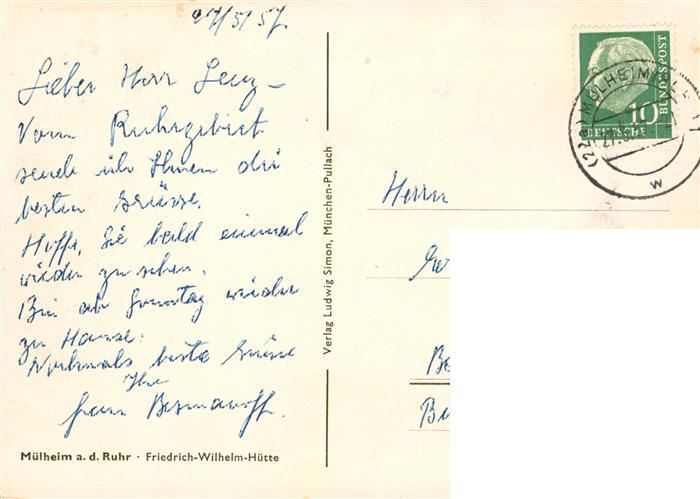 27/5/57.
Lieber Herr Lenz –
Vom Ruhrgebiet
sende ich Ihnen die
besten Grüsse.
Hoffe, Sie bald einmal
wieder zu sehen.
Bin ab Sonntag wieder
zu Hause.
Nochmals beste Grüsse
Ihr
Mülheim a. d. Ruhr · Friedrich-Wilhelm-Hütte
Verlag Ludwig Simon, München-Pullach
10
DEUTSCHE
BUNDESPOST
(22a) MÜLHEIM
w
Herrn